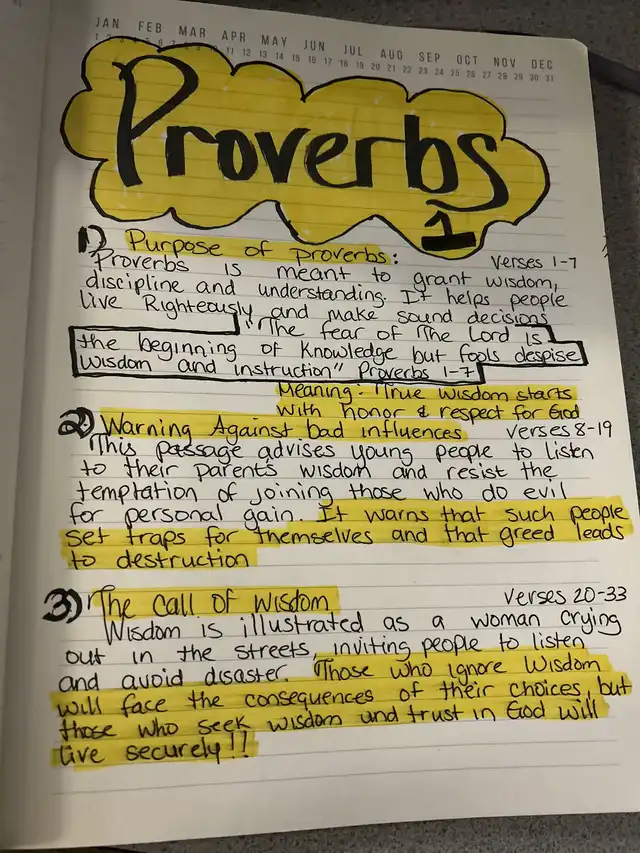 JAN FEB MAR APR MAY JUN JUL AUG SEP OCT NOV DEC
1 2 3 4 5 6 7 8 9 10 11 12 13 14 15 16 17 18 19 20 21 22 23 24 25 26 27 28 29 30 31
Proverbs
1
1) Purpose of proverbs: Verses 1-7
Proverbs is meant to grant wisdom,
discipline and understanding. It helps people
live Righteously and make sound decisions
"The fear of The Lord is
the beginning of Knowledge but fools despise
wisdom and instruction" Proverbs 1-7
Meaning: True wisdom starts
with honor & respect for God
2) Warning Against bad influences Verses 8-19
This passage advises young people to listen
to their parents wisdom and resist the
temptation of joining those who do evil
for personal gain. It warns that such people
set traps for themselves and that greed leads
to destruction
3) The Call of Wisdom Verses 20-33
Wisdom is illustrated as a woman crying
out in the streets, inviting people to listen
and avoid disaster. Those who ignore wisdom
will face the consequences of their choices, but
those who seek wisdom and trust in God will
live securely!!